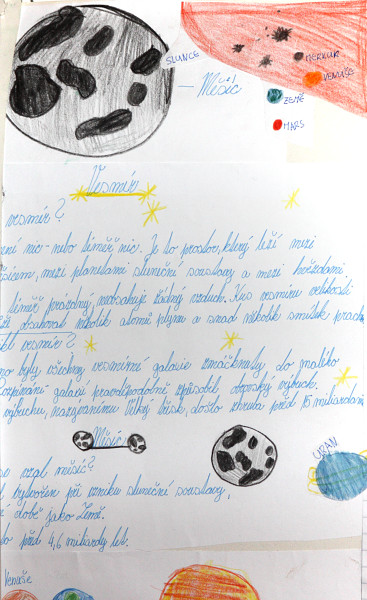 SLUNCE
MERKUR
VENUŠE
— Měsíc
ZEMĚ
MARS
Vesmír
vesmír?
ení nic - nebo téměř nic. Je to prostor, který leží mezi
ěsícem, mezi planetami sluneční soustavy a mezi hvězdami.
téměř prázdný, neobsahuje žádný vzduch. Kus vesmíru velikosti
obsahovat několik atomů plynu a snad několik smítek prach
vesmír?
no byly všechny vesmírné galaxie zmáčknuty do malého
Rozpínání galaxií pravděpodobně způsobil obrovský výbuch.
výbuchu, nazvanému Velký třesk, došlo zhruba před 15 miliardami
Měsíc
se vzal měsíc?
l vytvořen při vzniku sluneční soustavy,
é době jako Země.
lo před 4,6 miliardy let.
URAN
Venuše